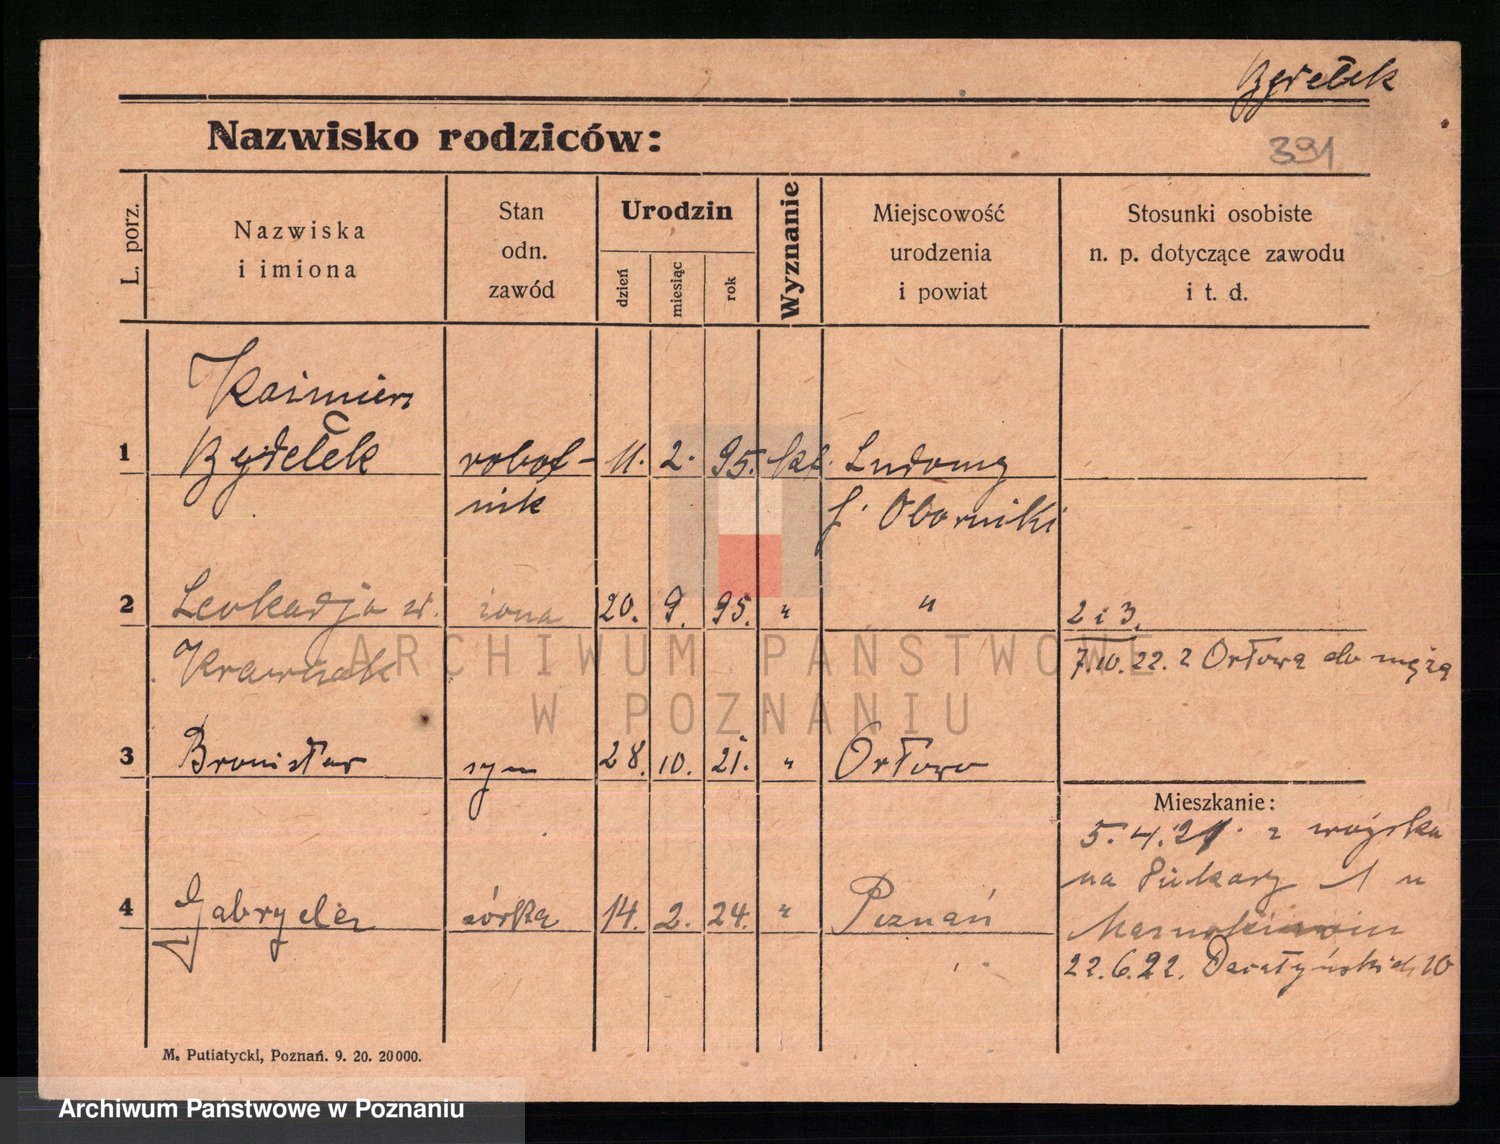 Bydełek
Nazwisko rodziców:
391
L. porz.
Nazwiska
i imiona
Stan
odn.
zawód
Urodzin
dzień
miesiąc
rok
Wyznanie
Miejscowość
urodzenia
i powiat
Stosunki osobiste
n. p. dotyczące zawodu
i t. d.
Kaimierz
1 Bydełek robot- 11. 2. 95. kat. Ludomy
nik p. Oborniki
2 Leokadja z d. żona 20. 9. 95. " " 2 i 3.
Krawczak 7.10.22. z Orłowa do męża
3 Bronisław syn 28. 10. 21. " Orłowo
Mieszkanie:
5.4.21. z wojska
na Piekary 1 u
4 Gabryela córka 14. 2. 24. " Poznań
22.6.22. 10
M. Putiatycki, Poznań. 9. 20. 20000.
ARCHIWUM PAŃSTWOWE
W POZNANIU
Archiwum Państwowe w Poznaniu